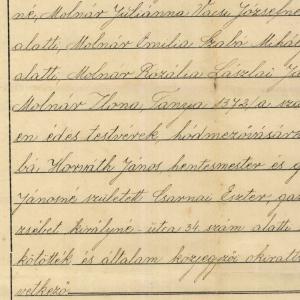 né, Molnár Juliánna Vácsi Józsefné
alatti, Molnár Emilia Szabó Mihá
alatti, Molnár Rozália Lászlai Já
Molnár Ilona, Tanya 1372/a szá
en édes testvérek, hódmezővásárh
bá Horváth János hentesmester és g
Jánosné született Csarnai Eszter, gaz
zsébet királyné-utca 34 szám alatti
kötötték és általam közjegyzői okiratb
vetkező